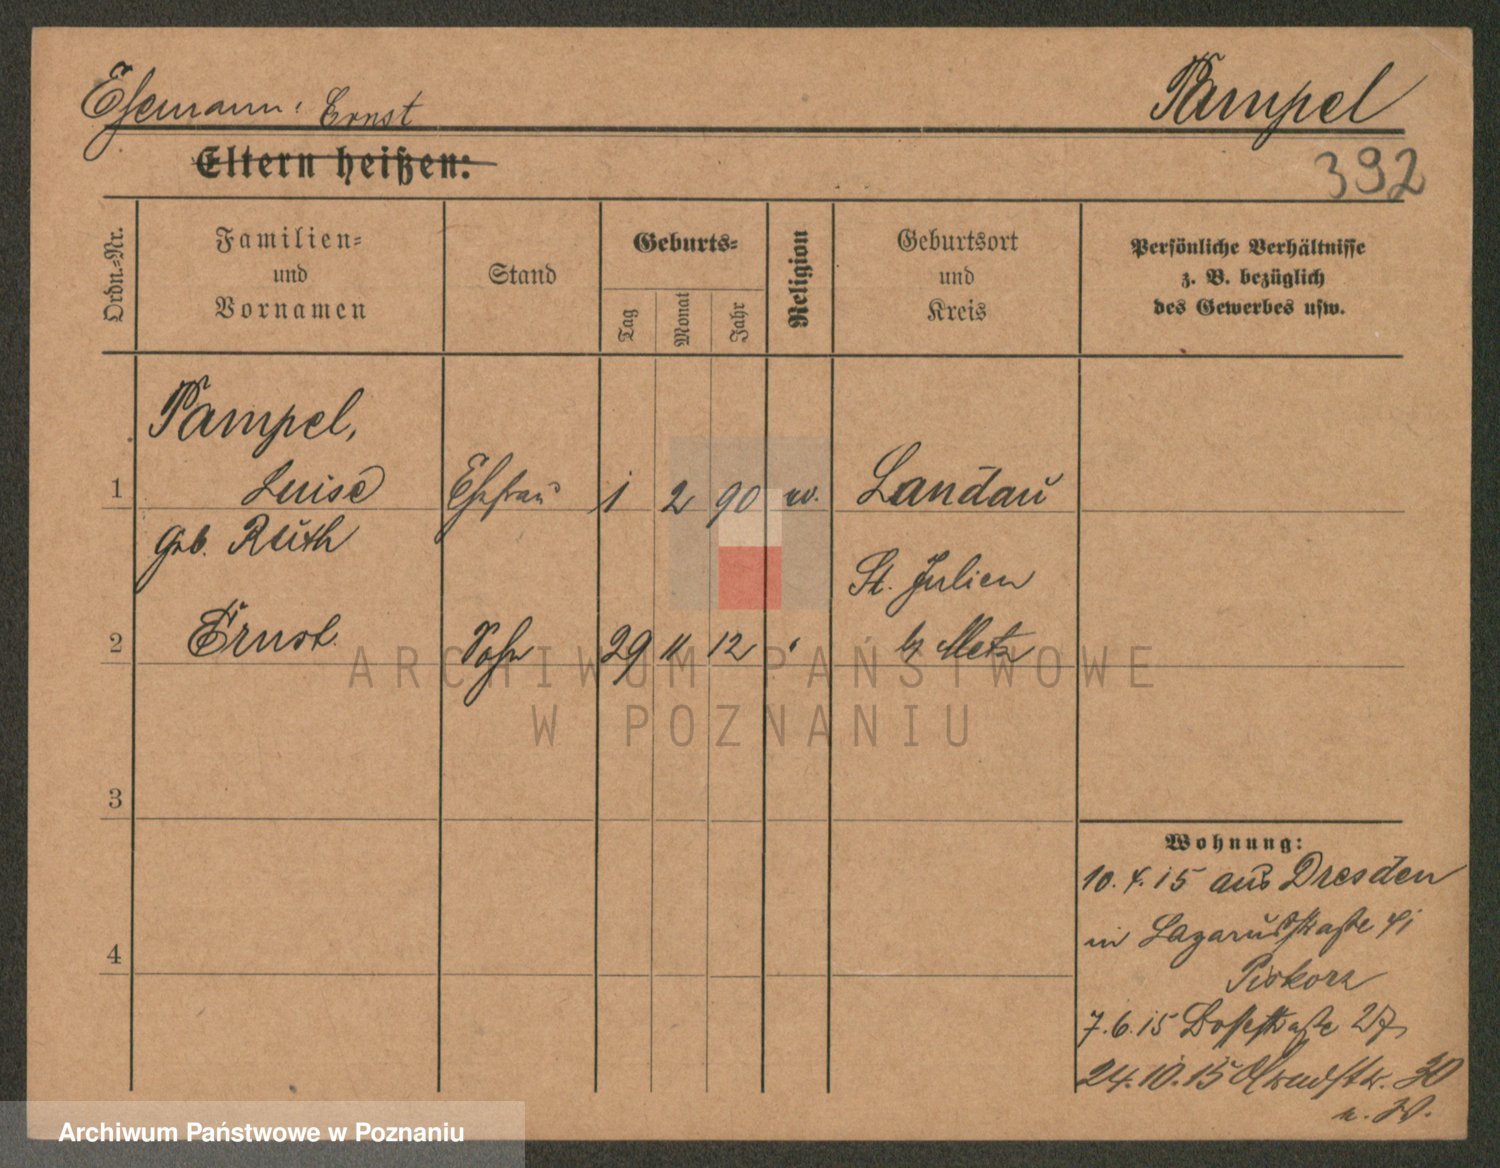 Ehemann: Ernst
Pampel
Eltern heißen:
392
Ordn.=Nr.
Familien=
und
Vornamen
Stand
Geburts=
Tag
Monat
Jahr
Religion
Geburtsort
und
Kreis
Persönliche Verhältnisse
z. B. bezüglich
des Gewerbes usw.
Pampel,
1 Luise Ehefrau 1 2 90 ev. Landau
geb. Ruth
St. Julien
2 Ernst Sohn 29 11 12 " b/ Metz
3
4
Wohnung:
10.4.15 aus Dresden
in Lazarusstraße 41
Piskorz
7.6.15 27
24.10.15 30
n. W.
ARCHIWUM PAŃSTWOWE
W POZNANIU
Archiwum Państwowe w Poznaniu